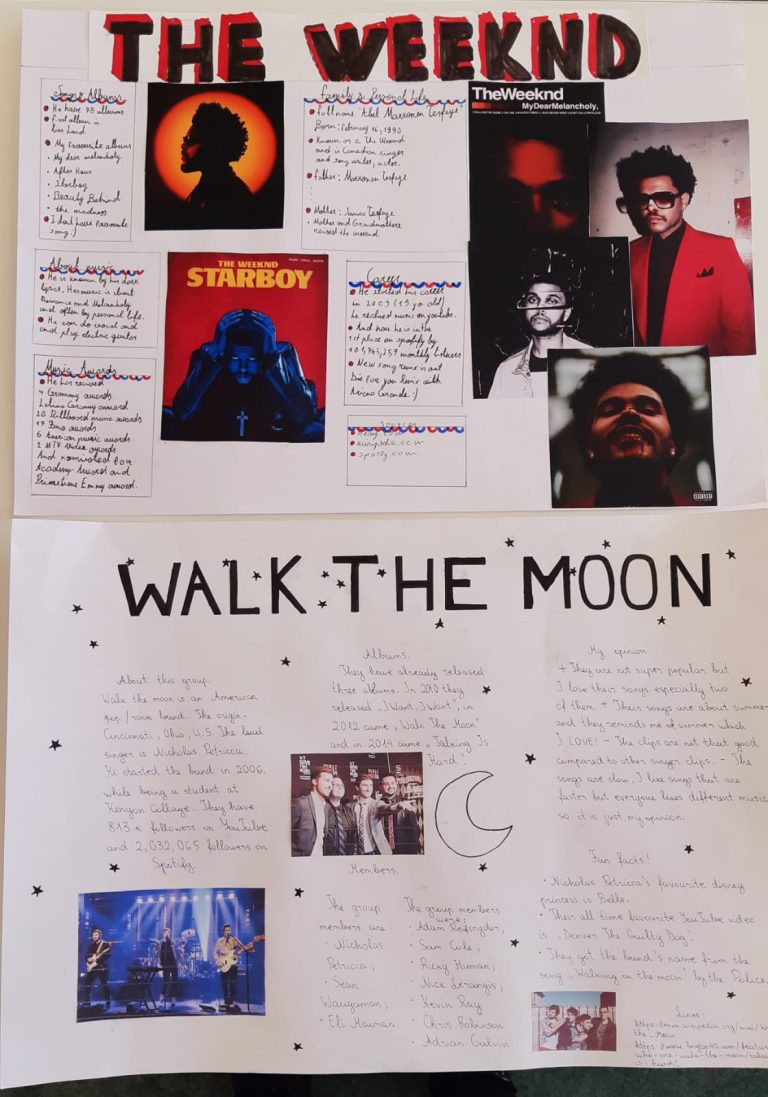 THE WEEKND
Songs & Albums
He have 78 albums
First album is
his hard
My favourite albums
My dear melancholy
After Hour
Starboy
Beauty Behind
the madness
I dont have favourite
song :)
Family & Personal Life
full name "Abel Makkonen Tesfaye"
Born: February 16, 1990
Known as a The Weeknd
and is Canadian singer
and song writer, actor.
father: Makkonen Tesfaye
Mother: Samra Tesfaye
Mother and Grandmothere
raised the weeknd.
TheWeeknd
MyDearMelancholy,
About music
He is known by his dark
lyrics. Her music is about
Romance and Melancholy
and often by personal life.
He can do vocal and
and play electric guitar
THE WEEKND
STARBOY
Career
He started his career
in 2009 (19. yo. old)
he reclised music on youtube.
And now he is in the
1st place on spotify by
monthly listeners
New song remix is out
Die for you Remix with
Ariana Grande :)
Music Awards
He has recived
4 Grammy awards
Latino Grammy award
20 Billboard music awards
17 Juno awards
6 American music awards
2 MTV Video awards
And nominated for
Academy Award and
Primetime Emmy award.
Sources
wikipedia.com
spotify.com
WALK THE MOON
About this group.
Walk the moon is an American
pop/rock band. The origin-
Cincinnati, Ohio, U.S. The lead
singer is Nicholas Petricca.
He started the band in 2006,
while being a student at
Kenyon Collage. They have
813 k followers on YouTube
and 2,032,065 followers on
Spotify.
Albums.
They have already released
three albums. In 2010 they
released „I Want, I Want", in
2012 came „Walk The Moon"
and in 2014 came „Talking Is
Hard".
Members.
The group
members are:
· Nicholas
Petricca,
· Sean
Waugaman;
· Eli Maiman.
The group members
were:
· Adam Reifsnyder,
· Sam Cole,
· Ricky Human,
· Nick Lerangis,
· Kevin Ray
· Chris Robinson
· Adrian Galvin
My opinion.
+ They are not super popular but
I love their songs especially two
of them. + Their songs are about summer
and they reminds me of summer which
I LOVE! - The clips are not that good
compared to other singer clips. - The
songs are slow, I like songs that are
faster but everyone likes different music
so it is just my opinion.
Fun facts!
· Nicholas Petricca's favourite disney
princess is Belle.
· Their all time favourite YouTube video
is „Denver The Guilty Dog".
· They got the band's name from the
song „Walking on the moon" by the Police.
Links: